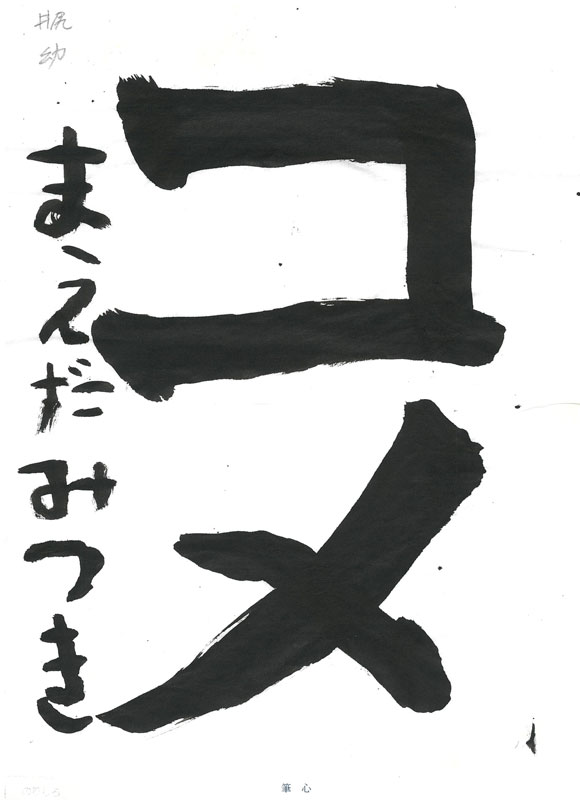 コメ
まえだみつき
井尻
幼
筆心